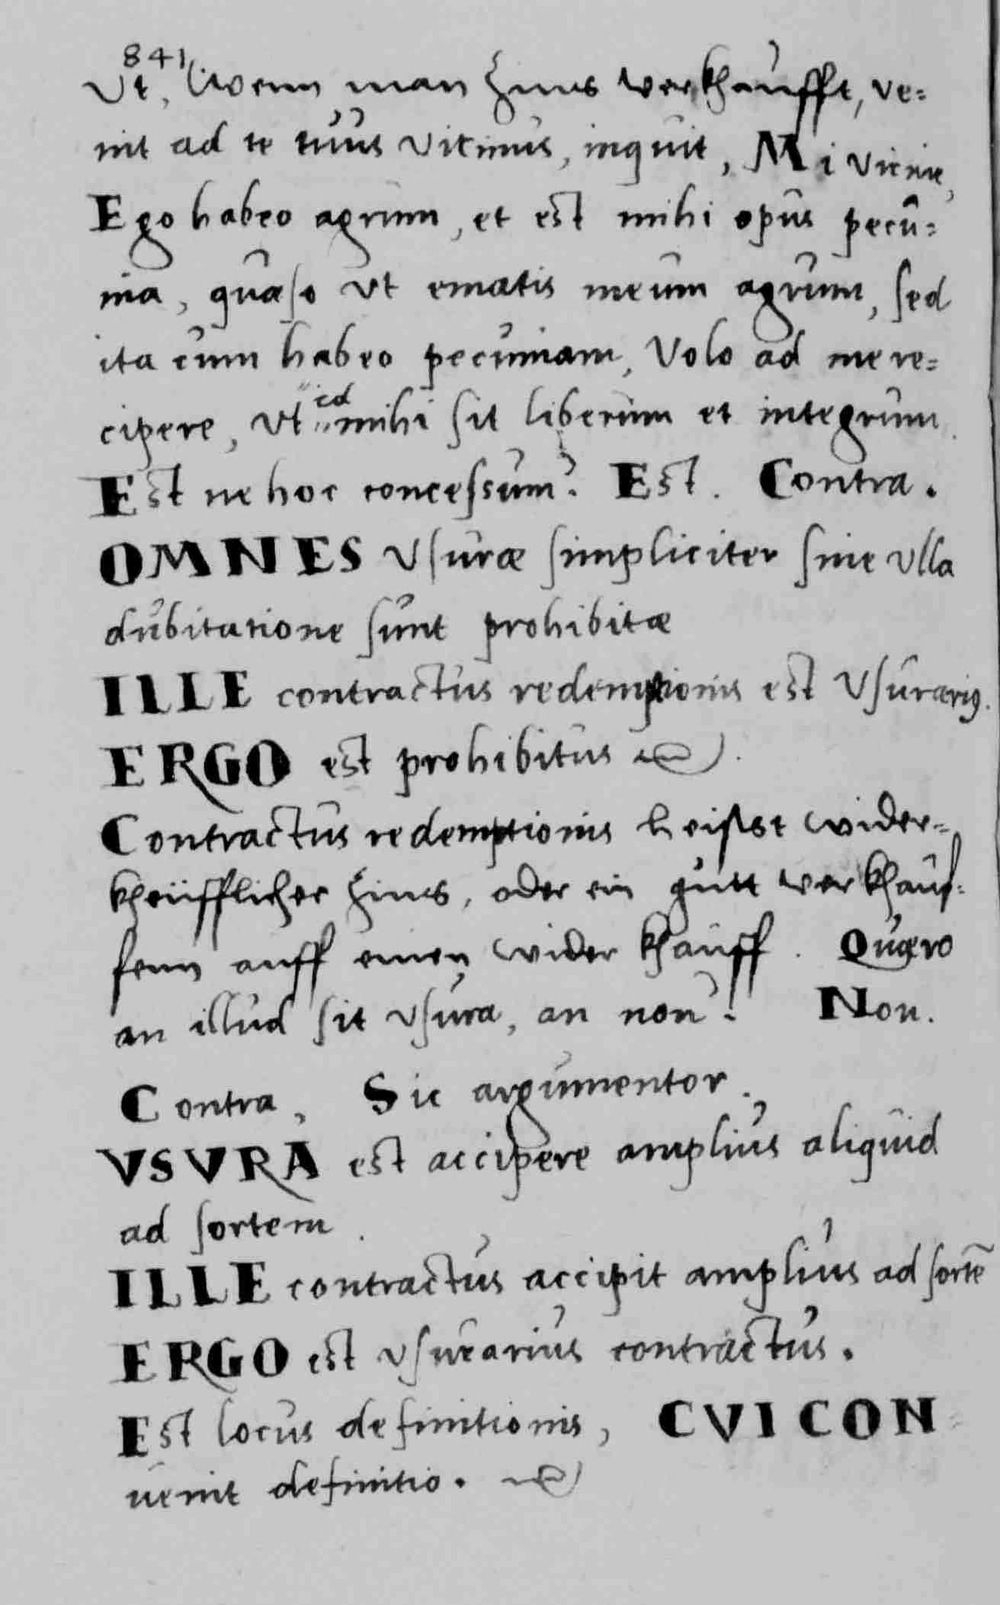 841
Ut, Wenn man Zinns verkhaufft, ve-
nit ad te tuus vicinus, inquit, Mi vicine,
Ego habeo agrum, et est mihi opus pecu-
nia, quæso ut ematis meum agrum, sed
ita cum habeo pecuniam, Volo ad me re-
cipere, Ut id mihi sit liberum et integrum.
Est ne hoc concessum? Est. Contra.
OMNES Usuræ simpliciter sine ulla
dubitatione sunt prohibitæ
ILLE contractus redemptionis est Usurarius.
ERGO est prohibitus
Contractus redemptionis heisst wider-
kheüfflicher Zinns, oder ein gutt verkhauf-
fenn auff einen wider khauff. Quæro
an illud sit usura, an non? Non.
Contra, Sic argumentor.
VSVRA est accipere amplius aliquid
ad sortem.
ILLE contractus accipit amplius ad sortē
ERGO est usurarius contractus.
Est locus definitionis, CVI CON-
uenit definitio.